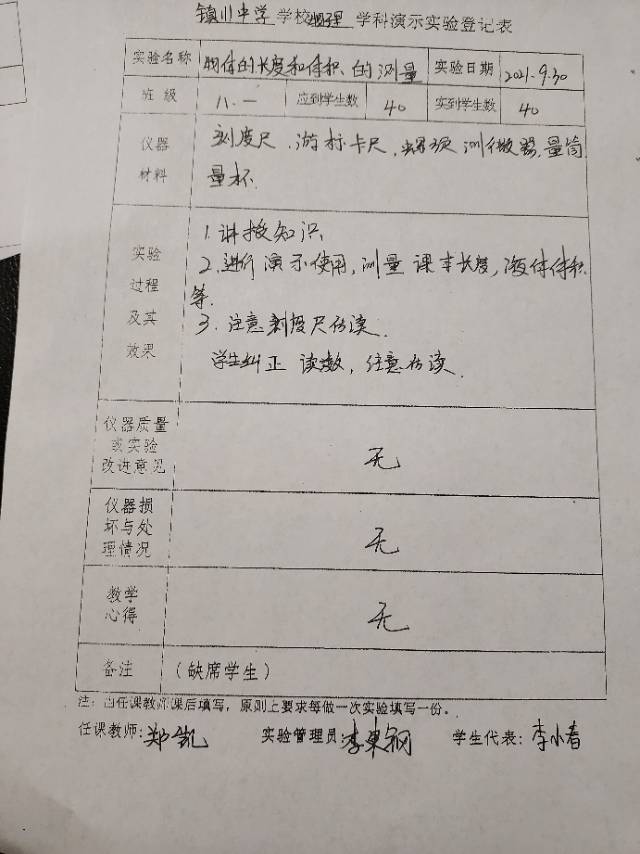 镇川中学 学校 物理 学科演示实验登记表
实验名称 物体的长度和体积的测量 实验日期 2021.9.30
班 级 八.一 应到学生数 40 实到学生数 40
仪器 刻度尺、游标卡尺、螺旋测微器、量筒
材料 量杯.
1.讲授知识
实验 2.进行演示使用,测量课本长度,液体体积
过程 等.
及其 3.注意刻度尺估读.
效果 学生纠正读数,注意估读.
仪器质量
或实验
改进意见 无
仪器损
坏与处 无
理情况
教学
心得 无
备注 (缺席学生)
注:由任课教师课后填写,原则上要求每做一次实验填写一份。
任课教师:郑凯 实验管理员: 学生代表:李小春